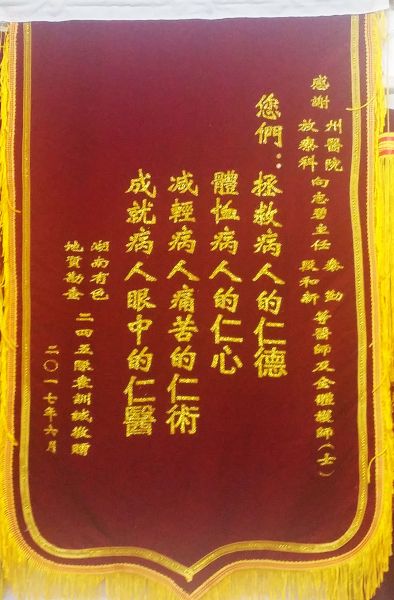 感謝 州醫院
放療科 向志碧主任 秦勤 段和新 等醫師及全體護師(士)
您們:拯救病人的仁德
體恤病人的仁心
減輕病人痛苦的仁術
成就病人眼中的仁醫
湖南有色
地質勘查 二四五隊袁訓誠敬贈
二〇一七年六月